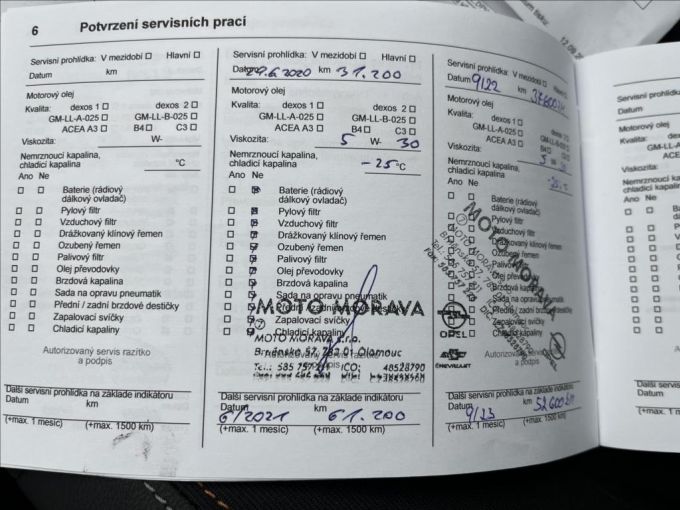 6 Potvrzení servisních prací
Servisní prohlídka: V mezidobí Hlavní
Datum km
Motorový olej
Kvalita: dexos 1 dexos 2
GM-LL-A-025 GM-LL-B-025
ACEA A3 B4 C3
Viskozita: W-
Nemrznoucí kapalina,
chladicí kapalina °C
Ano Ne
Baterie (rádiový
dálkový ovladač)
Pylový filtr
Vzduchový filtr
Drážkovaný klínový řemen
Ozubený řemen
Palivový filtr
Olej převodovky
Brzdová kapalina
Sada na opravu pneumatik
Přední / zadní brzdové destičky
Zapalovací svíčky
Chladicí kapaliny
Autorizovaný servis razítko
a podpis
Další servisní prohlídka na základě indikátoru
Datum km
(+max. 1 měsíc) (+max. 1500 km)
Servisní prohlídka: V mezidobí Hlavní
Datum 29.6.2020 km 31.200
Motorový olej
Kvalita: dexos 1 dexos 2
GM-LL-A-025 GM-LL-B-025
ACEA A3 B4 C3
Viskozita: 5 W- 30
Nemrznoucí kapalina,
chladicí kapalina -25 °C
Ano Ne
Baterie (rádiový
dálkový ovladač)
Pylový filtr
Vzduchový filtr
Drážkovaný klínový řemen
Ozubený řemen
Palivový filtr
Olej převodovky
Brzdová kapalina
Sada na opravu pneumatik
MOTO MORAVA
Zapalovací svíčky
Chladicí kapaliny
MOTO MORAVA s.r.o.
Brněnská 57, 782 01 Olomouc
Tel.: 585 757 IČO: 48528790
Další servisní prohlídka na základě indikátoru
Datum 6/2021 km 61.200
(+max. 1 měsíc) (+max. 1500 km)
Servisní prohlídka: V mezidobí Hlavní
Datum 9/22 km
Motorový olej
Kvalita: dexos 1 dexos 2
GM-LL-A-025 GM-LL-B-025
ACEA A3 B4 C3
Viskozita: 5 W 30
Nemrznoucí kapalina,
chladicí kapalina
Ano Ne
Baterie (rádiový
dálkový ovladač)
Pylový filtr
Vzduchový filtr
Drážkovaný klínový řemen
Ozubený řemen
Palivový filtr
Olej převodovky
Brzdová kapalina
Sada na opravu pneumatik
Zapalovací svíčky
Chladicí kapaliny
MOTO MORAVA
OPEL
CHEVROLET
OPEL
Autorizovaný servis
a podpis
Další servisní prohlídka na základě indikátoru
Datum 9/23 km 52600 km
(+max. 1 měsíc) (+max. 1500 km)
Servisní prohlídka
Datum
Motorový olej
Kvalita:
Viskozita:
Nemrznoucí kapalina
chladicí kapalina
Ano Ne